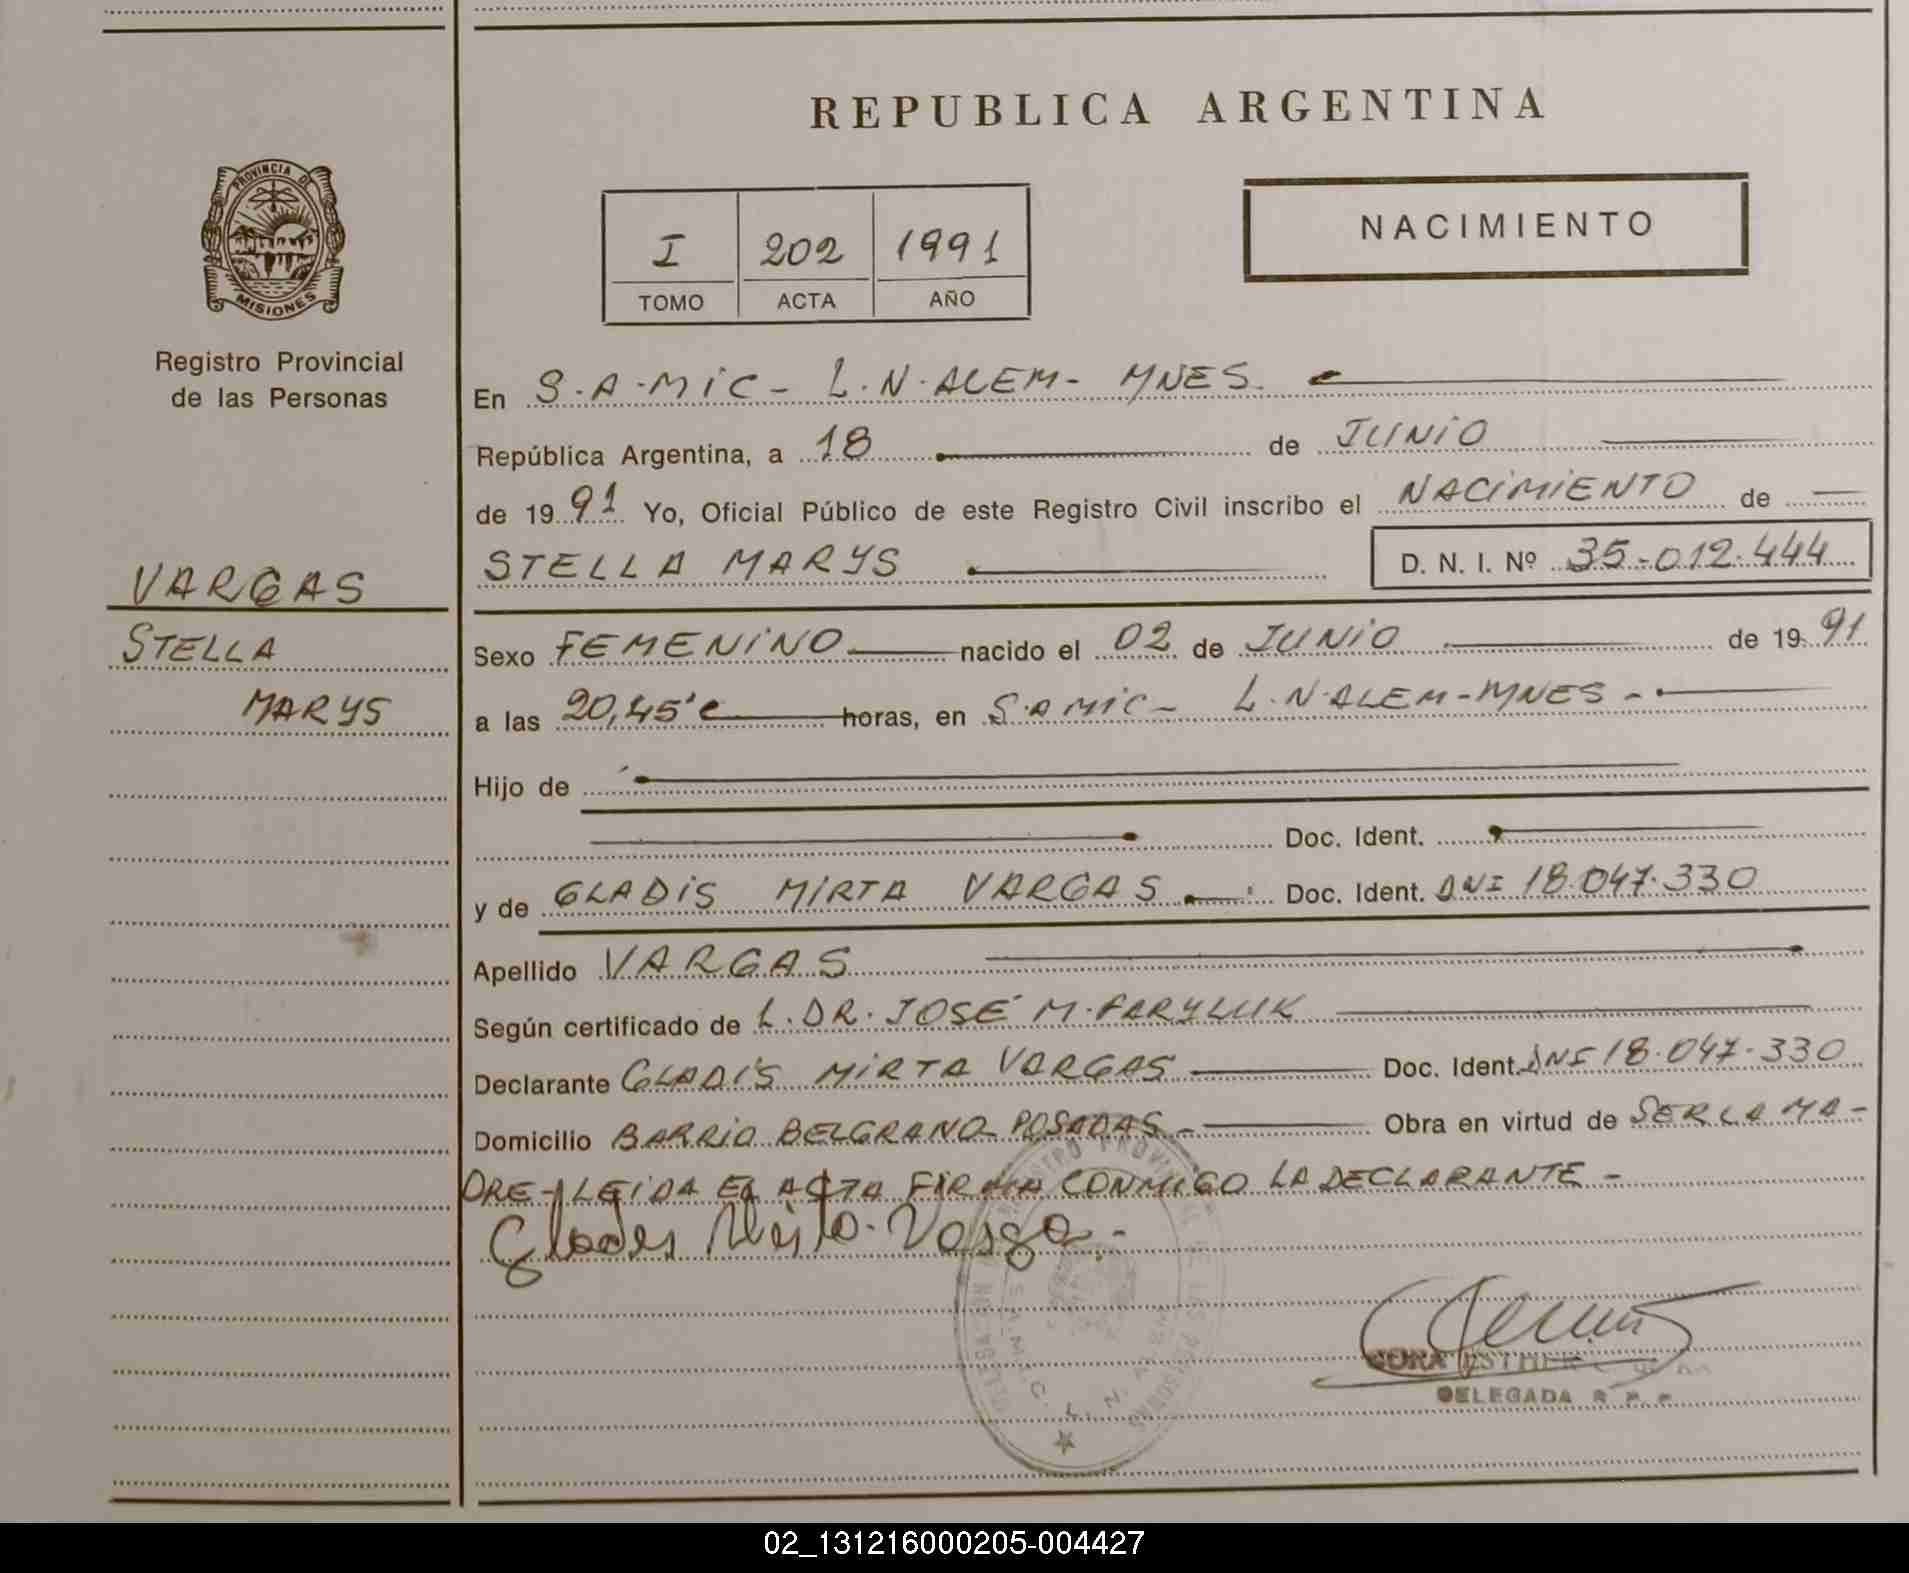 REPUBLICA ARGENTINA
PROVINCIA DE
MISIONES
Registro Provincial
de las Personas
I 202 1991
TOMO ACTA AÑO
NACIMIENTO
En S.A.MIC - L.N.ALEM - MNES.
República Argentina, a 18 de JUNIO
de 1991 Yo, Oficial Público de este Registro Civil inscribo el NACIMIENTO de
STELLA MARYS D. N. I. Nº 35.012.444
VARGAS
STELLA
MARYS
Sexo FEMENINO nacido el 02 de JUNIO de 1991
a las 20,45' horas, en S.A MIC - L.N.ALEM - MNES -
Hijo de
Doc. Ident.
y de GLADIS MIRTA VARGAS Doc. Ident. DNI 18.047.330
Apellido VARGAS
Según certificado de L. DR. JOSÉ M. FARYLUK
Declarante GLADIS MIRTA VARGAS Doc. Ident. DNI 18.047.330
Domicilio BARRIO BELGRANO POSADAS - Obra en virtud de SER LA MA-
DRE - LEIDA EL ACTA FIRMA CONMIGO LA DECLARANTE -
DELEGADA R. P. P.
02_131216000205-004427